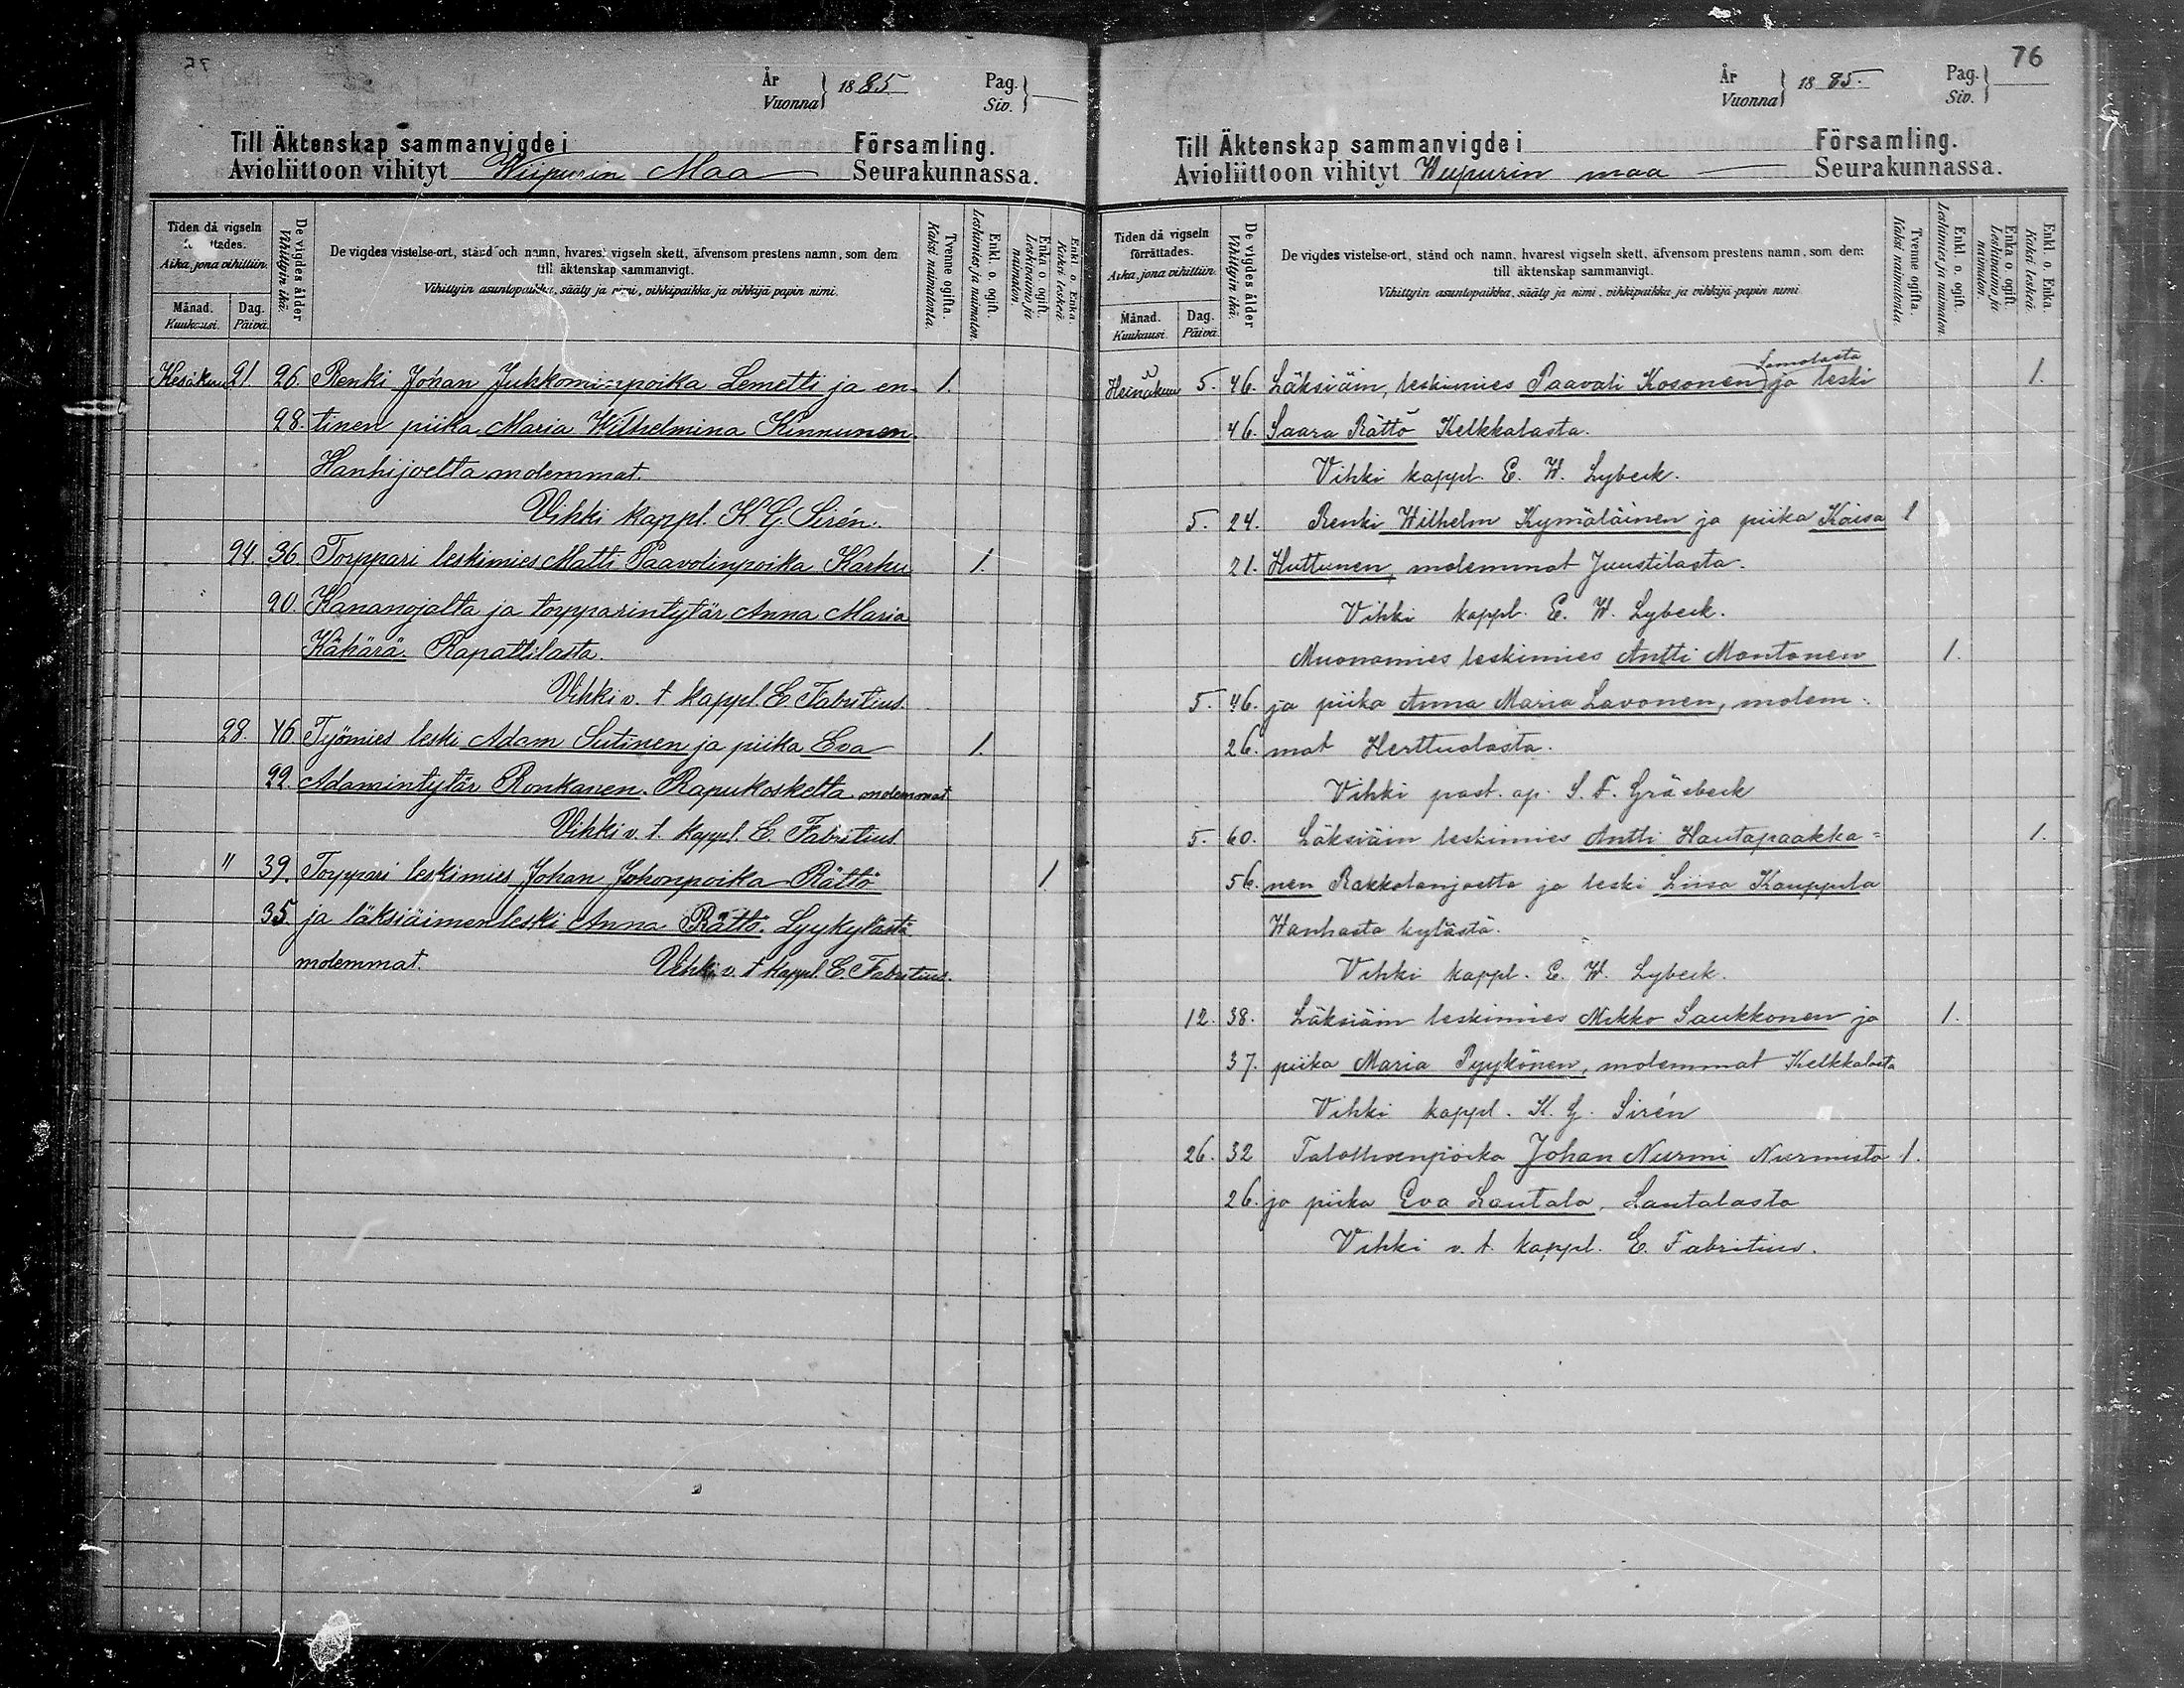 75
År
Vuonna
1885.
Pag.
Siv.
Till Äktenskap sammanvigde i Församling.
Avioliittoon vihityt Wiipurin Maa Seurakunnassa.
Tiden då vigseln
förrättades.
Aika, jona vihittiin.
Månad.
Kuukausi.
Dag.
Päivä.
De vigdes ålder
Vihittyin ikä.
De vigdes vistelse-ort, stånd och namn, hvarest vigseln skett, äfvensom prestens namn, som dem
till äktenskap sammanvigt.
Vihittyin asuntopaikka, sääty ja nimi, vihkipaikka ja vihkijä papin nimi.
Tvenne ogifta.
Kaksi naimatonta.
Enkl. o. ogift.
Leskimies ja naimaton.
Enka o. ogift.
Leskivaimo ja
naimaton.
Enkl. o. Enka.
Kaksi leskeä.
Kesäkuu 21 26. Renki Johan Juhkominpoika Lemetti ja en- 1.
28. tinen piika Maria Wilhelmina Kinnunen.
Hanhijoelta molemmat.
Vihki kappl. K G. Sirén.
24. 36. Torppari leskimies Matti Paavolinpoika Karhu 1.
20. Kananojalta ja torpparintytär Anna Maria
Kähärä Rapattilasta.
Vihki v. t kappl. E Fabritius.
28. 46 Työmies leski Adam Sutinen ja piika Eva 1.
22. Adamintytär Ronkanen. Rapukoskelta molemmat
Vihki v. t. kappl. E. Fabritius.
" 39. Torppari leskimies Johan Johonpoika Rättö 1
35. ja läksiäimenleski Anna Rättö. Lyykylästä
molemmat. Vihki v. t kappl. E. Fabritius.
76
År
Vuonna
1885.
Pag.
Siv.
Till Äktenskap sammanvigde i Församling.
Avioliittoon vihityt Wiipurin maa Seurakunnassa.
Tiden då vigseln
förrättades.
Aika, jona vihittiin.
Månad.
Kuukausi.
Dag.
Päivä.
De vigdes ålder
Vihittyin ikä.
De vigdes vistelse-ort, stånd och namn, hvarest vigseln skett, äfvensom prestens namn, som dem
till äktenskap sammanvigt.
Vihittyin asuntopaikka, sääty ja nimi, vihkipaikka ja vihkijä papin nimi
Tvenne ogifta.
Kaksi naimatonta.
Enkl. o. ogift.
Leskimies ja naimaton.
Enka o. ogift.
Leskivaimo ja
naimaton.
Enkl. o. Enka.
Kaksi leskeä.
Samolasta
Heinäkuu 5. 46. Läksiäin, leskimies Paavali Kosonen ja leski 1.
46. Saara Rättö Kelkkalasta.
Vihki kappl. E. W. Lybeck.
5. 24. Renki Wilhelm Kymäläinen ja piika Kaisa 1
21. Huttunen, molemmat Juustilasta.
Vihki kappl. E. W. Lybeck.
Muonamies leskimies Antti Montonen 1.
5. 46. ja piika Anna Maria Lavonen, molem-
26. mat Herttualasta.
Vihki past. ap. S. F. Gråsbeck
5. 60. Läksiäin leskimies Antti Hautapaakka= 1.
56. nen Rakkolanjoelta ja leski Liisa Kauppila
Wanhasta kylästä.
Vihki kappl. E. W. Lybeck.
12. 38. Läksiäin leskimies Mikko Saukkonen ja 1.
37. piika Maria Pyykönen, molemmat Kelkkalasta
Vihki kappl. K. G. Sirén
26. 32 Talollisenpoika Johan Nurmi Nurmista 1.
26. ja piika Eva Lautala, Lautalasta
Vihki v. t. kappl. E. Fabritius.